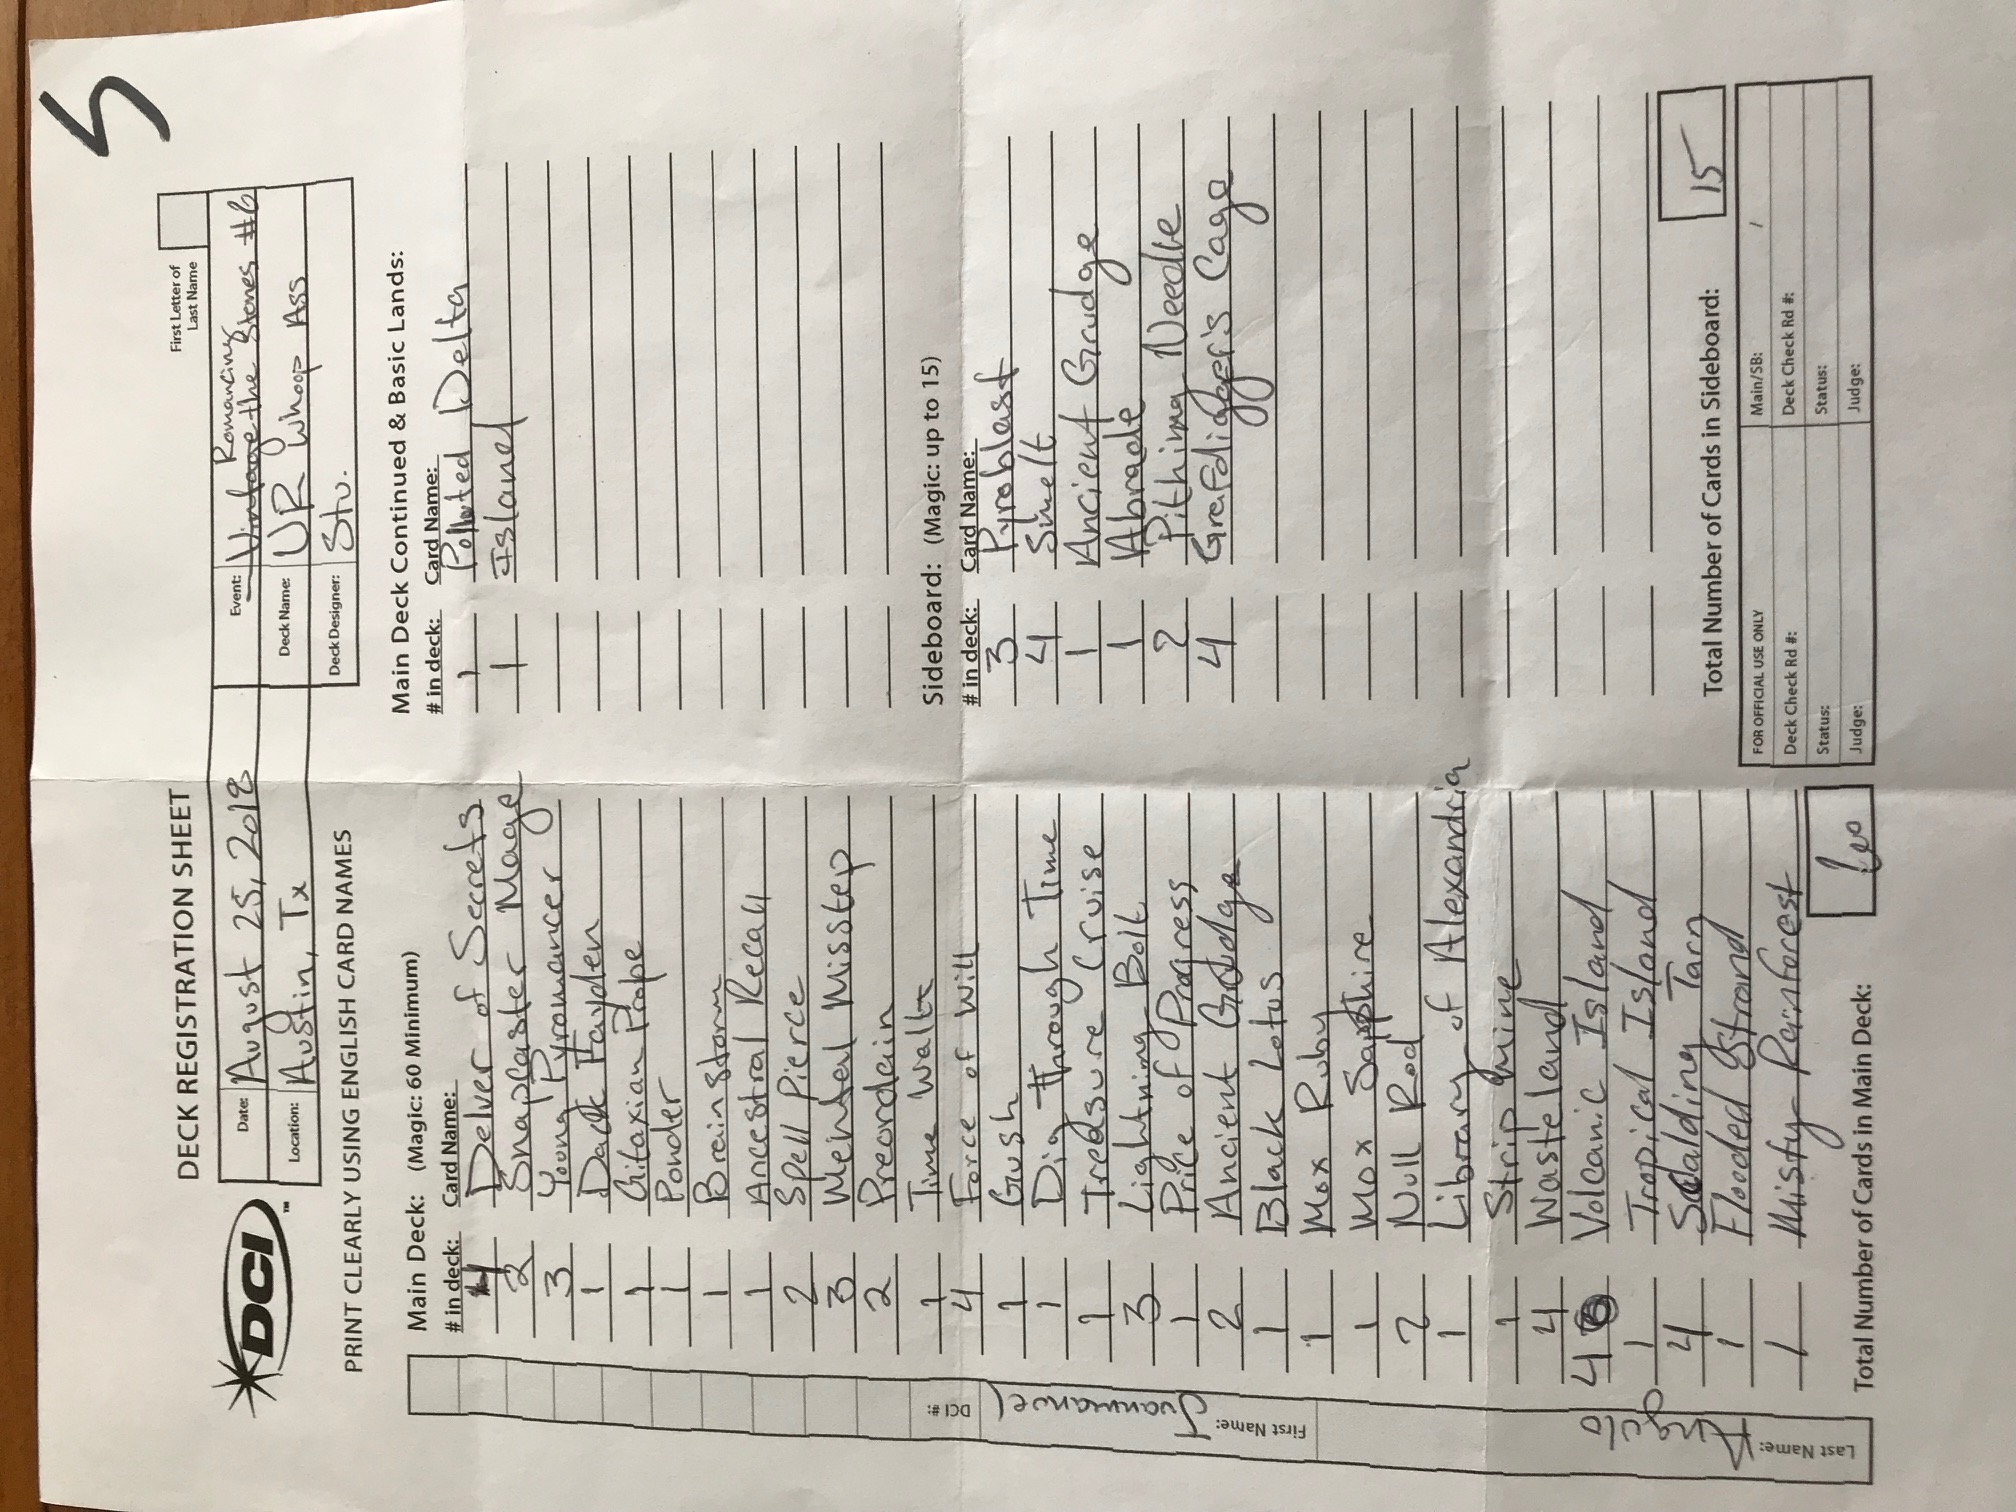 5
DECK REGISTRATION SHEET
First Letter of
Last Name
DCI
TM
Date: August 25, 2018
Location: Austin, Tx
Event: Vintage Romancing the Stones #6
Deck Name: UR Whoop Ass
Deck Designer: Stu.
PRINT CLEARLY USING ENGLISH CARD NAMES
Main Deck: (Magic: 60 Minimum)
# in deck: Card Name:
4 Delver of Secrets
2 Snapcaster Mage
3 Young Pyromancer
1 Dack Fayden
1 Gitaxian Probe
1 Ponder
1 Brainstorm
1 Ancestral Recall
2 Spell Pierce
3 Mental Misstep
2 Preordain
1 Time Walk
4 Force of Will
1 Gush
1 Dig Through Time
1 Treasure Cruise
3 Lightning Bolt
1 Price of Progress
2 Ancient Grudge
1 Black Lotus
1 Mox Ruby
1 Mox Sapphire
2 Null Rod
1 Library of Alexandria
1 Strip Mine
4 Wasteland
4 Volcanic Island
1 Tropical Island
4 Scalding Tarn
1 Flooded Strand
1 Misty Rainforest
Total Number of Cards in Main Deck: 60
Main Deck Continued & Basic Lands:
# in deck: Card Name:
1 Polluted Delta
1 Island
Sideboard: (Magic: up to 15)
# in deck: Card Name:
3 Pyroblast
4 Smelt
1 Ancient Grudge
1 Abrade
2 Pithing Needle
4 Grafdigger's Cage
Total Number of Cards in Sideboard: 15
FOR OFFICIAL USE ONLY
Main/SB: /
Deck Check Rd #:
Deck Check Rd #:
Status:
Status:
Judge:
Judge:
DCI #:
First Name: Juanmanuel
Last Name: Angulo